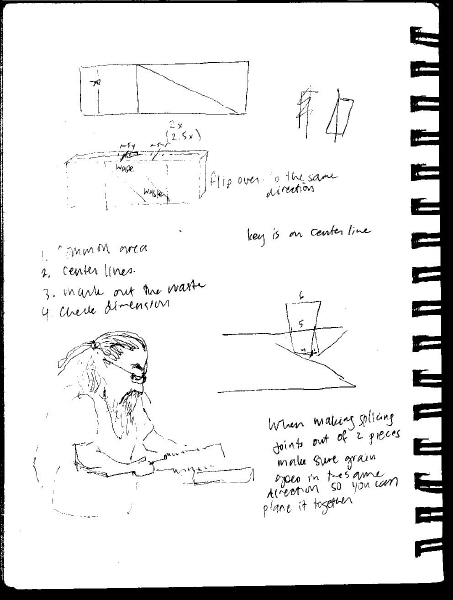 2x
(2.5x)
waste
waste
flip over to the same
direction
key is on center line
1. Common area
2. center lines.
3. mark out the waste
4. Check dimension
6
5
When making splicing
joints out of 2 pieces
make sure grain
goes in the same
direction so you can
plane it together